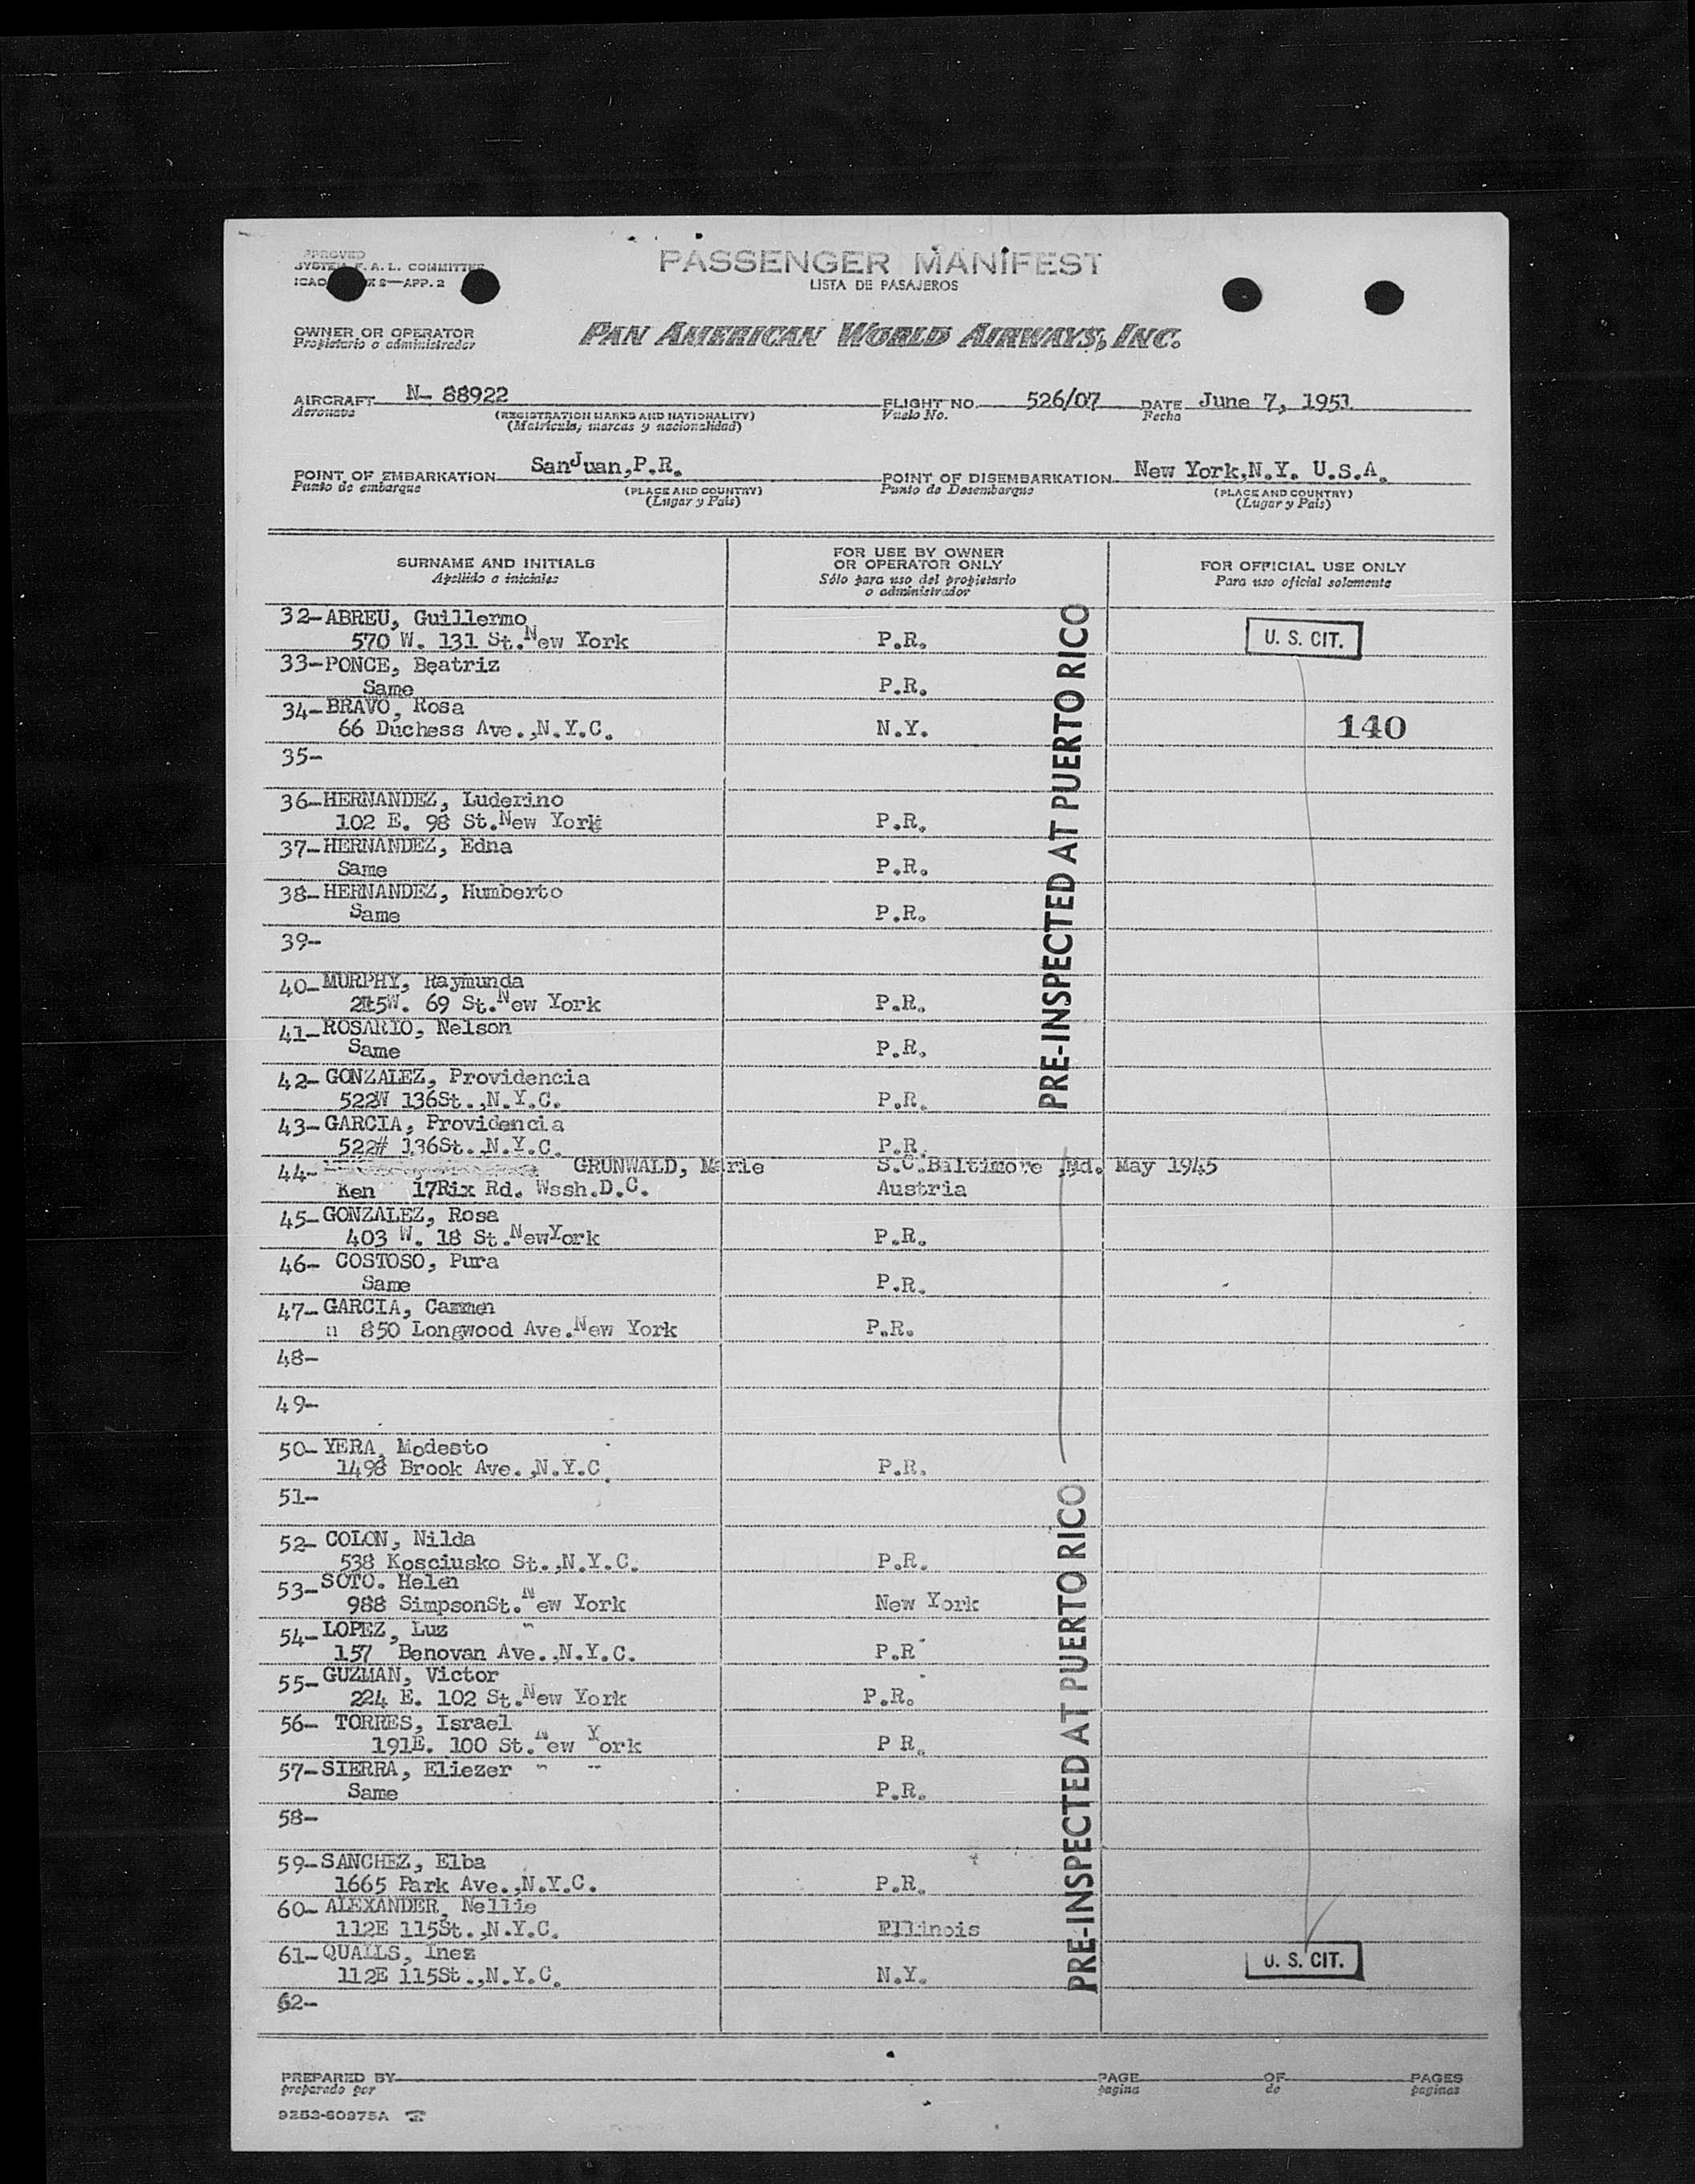 APPROVED
SYSTEM F. A. L. COMMITTEE
ICAO S—APP. 2
PASSENGER MANIFEST
LISTA DE PASAJEROS
OWNER OR OPERATOR
Propietario o administrador
PAN AMERICAN WORLD AIRWAYS, INC.
AIRCRAFT N- 88922 FLIGHT NO. 526/07 DATE June 7, 1951
Aeronave (REGISTRATION MARKS AND NATIONALITY) Vuelo No. Fecha
(Matricula, marcas y nacionalidad)
POINT OF EMBARKATION SanJuan,P.R. POINT OF DISEMBARKATION New York,N.Y. U.S.A.
Punto de embarque (PLACE AND COUNTRY) Punto de Desembarque (PLACE AND COUNTRY)
(Lugar y Pais) (Lugar y Pais)
SURNAME AND INITIALS
Apellido e iniciales
FOR USE BY OWNER
OR OPERATOR ONLY
Sólo para uso del propietario
o administrador
FOR OFFICIAL USE ONLY
Para uso oficial solamente
32-ABREU, Guillermo
570 W. 131 St.New York P.R. U. S. CIT.
33-PONCE, Beatriz
Same P.R.
34-BRAVO, Rosa
66 Duchess Ave.,N.Y.C. N.Y. 140
35-
36-HERNANDEZ, Luderino
102 E. 98 St.New York P.R.
37-HERNANDEZ, Edna
Same P.R.
38-HERNANDEZ, Humberto
Same P.R.
39-
40-MURPHY, Raymunda
W. 69 St.New York P.R.
41-ROSARIO, Nelson
Same P.R.
42-GONZALEZ, Providencia
522W 136St.,N.Y.C. P.R.
43-GARCIA, Providencia
522# 136St.,N.Y.C. P.R.
44- GRUNWALD, Marie S.C.Baltimore ,Md. May 1945
Ken 17Rix Rd. Wssh.D.C. Austria
45-GONZALEZ, Rosa
403 W. 18 St.NewYork P.R.
46- COSTOSO, Pura
Same P.R.
47-GARCIA, Carmen
n 850 Longwood Ave.New York P.R.
48-
49-
50-YERA, Modesto
1498 Brook Ave.,N.Y.C. P.R.
51-
52- COLON, Nilda
538 Kosciusko St.,N.Y.C. P.R.
53-SOTO. Helen
988 SimpsonSt.New York New York
54-LOPEZ, Luz
157 Benovan Ave.,N.Y.C. P.R
55-GUZMAN, Victor
224 E. 102 St.New York P.R.
56- TORRES, Israel
191E. 100 St.New York P R.
57-SIERRA, Eliezer
Same P.R.
58-
59-SANCHEZ, Elba
1665 Park Ave.,N.Y.C. P.R.
60-ALEXANDER, Nellie
112E 115St.,N.Y.C. Illinois
61-QUALLS, Inez
112E 115St.,N.Y.C. N.Y. U. S. CIT.
62-
PRE-INSPECTED AT PUERTO RICO
PRE-INSPECTED AT PUERTO RICO
PREPARED BY PAGE OF PAGES
preparado por pagina de paginas
9253-60375A